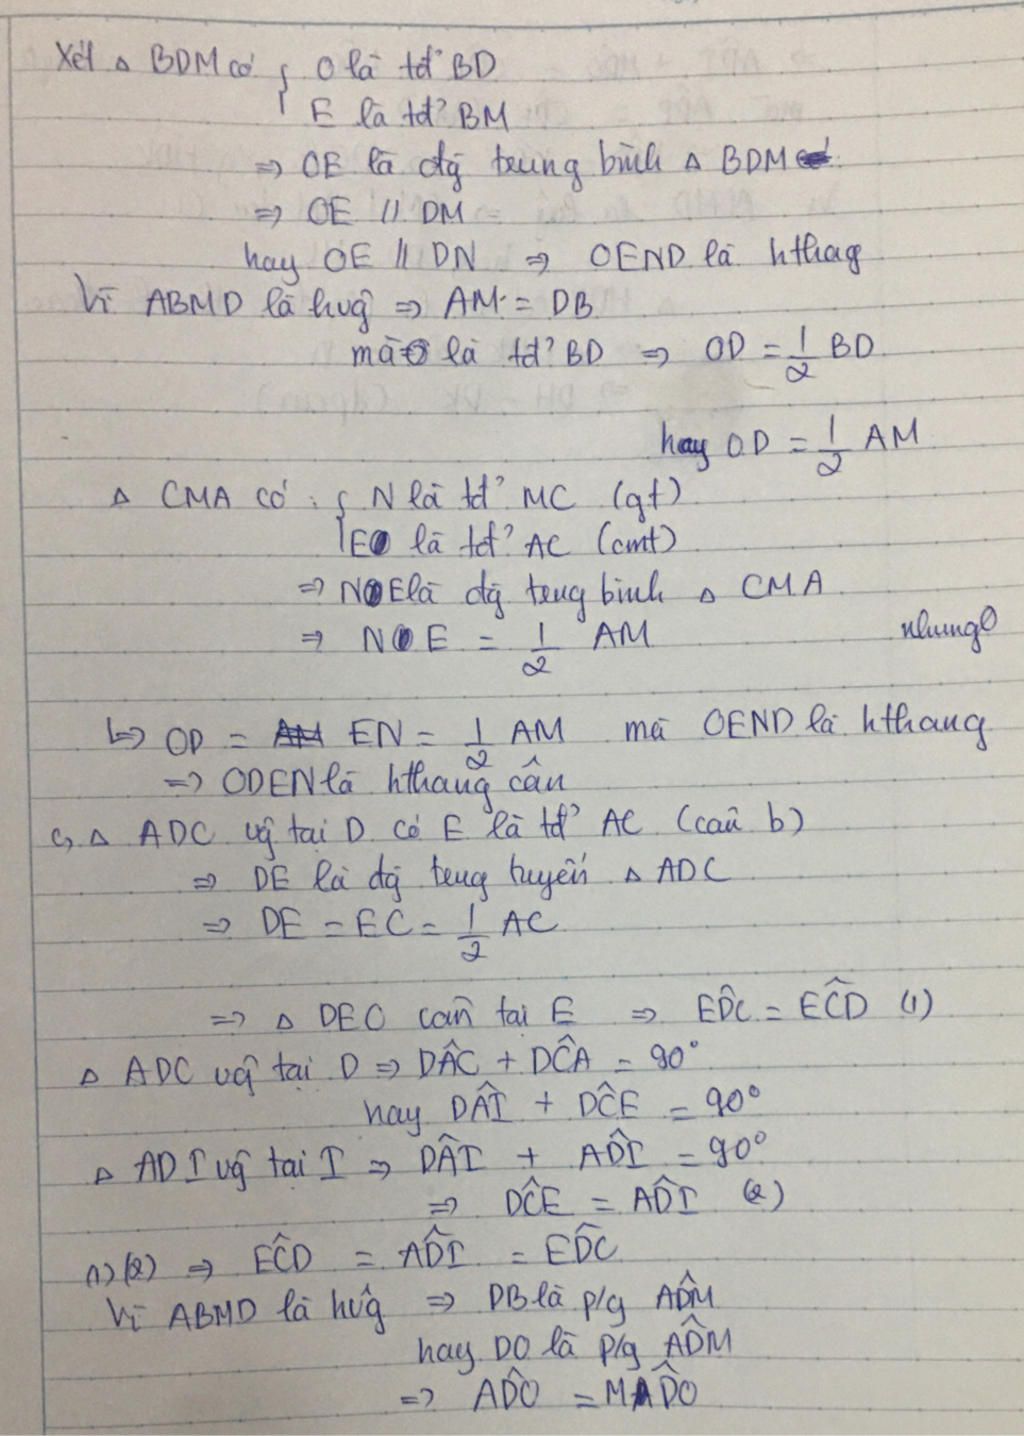 Xét Δ BDM có { O là tđ² BD
E là tđ² BM
⇒ OE là đg̃ trung bình Δ BDM
⇒ OE // DM
hay OE // DN ⇒ OEND là hthag
Vì ABMD là hvg̃ ⇒ AM = DB
mà O là tđ² BD ⇒ OD = 1/2 BD
hay OD = 1/2 AM
Δ CMA có : { N là tđ² MC (gt)
E là tđ² AC (cmt)
⇒ NE là đg̃ trung bình Δ CMA
⇒ NE = 1/2 AM nhung
↳ OD = EN = 1/2 AM mà OEND là hthang
⇒ ODEN là hthang cân
c, Δ ADC vg̃ tại D có E là tđ² AC (câu b)
⇒ DE là đg̃ trung tuyến Δ ADC
⇒ DE = EC = 1/2 AC
⇒ Δ DEC cân tại E ⇒ ED̂C = EĈD (1)
Δ ADC vg̃ tại D ⇒ DÂC + DĈA = 90°
hay DÂI + DĈE = 90°
Δ ADI vg̃ tại I ⇒ DÂI + AD̂I = 90°
⇒ DĈE = AD̂I (2)
(1)(2) ⇒ EĈD = AD̂I = ED̂C
Vì ABMD là hvg̃ ⇒ DB là p/g AD̂M
hay DO là p/g AD̂M
⇒ AD̂O = MD̂O